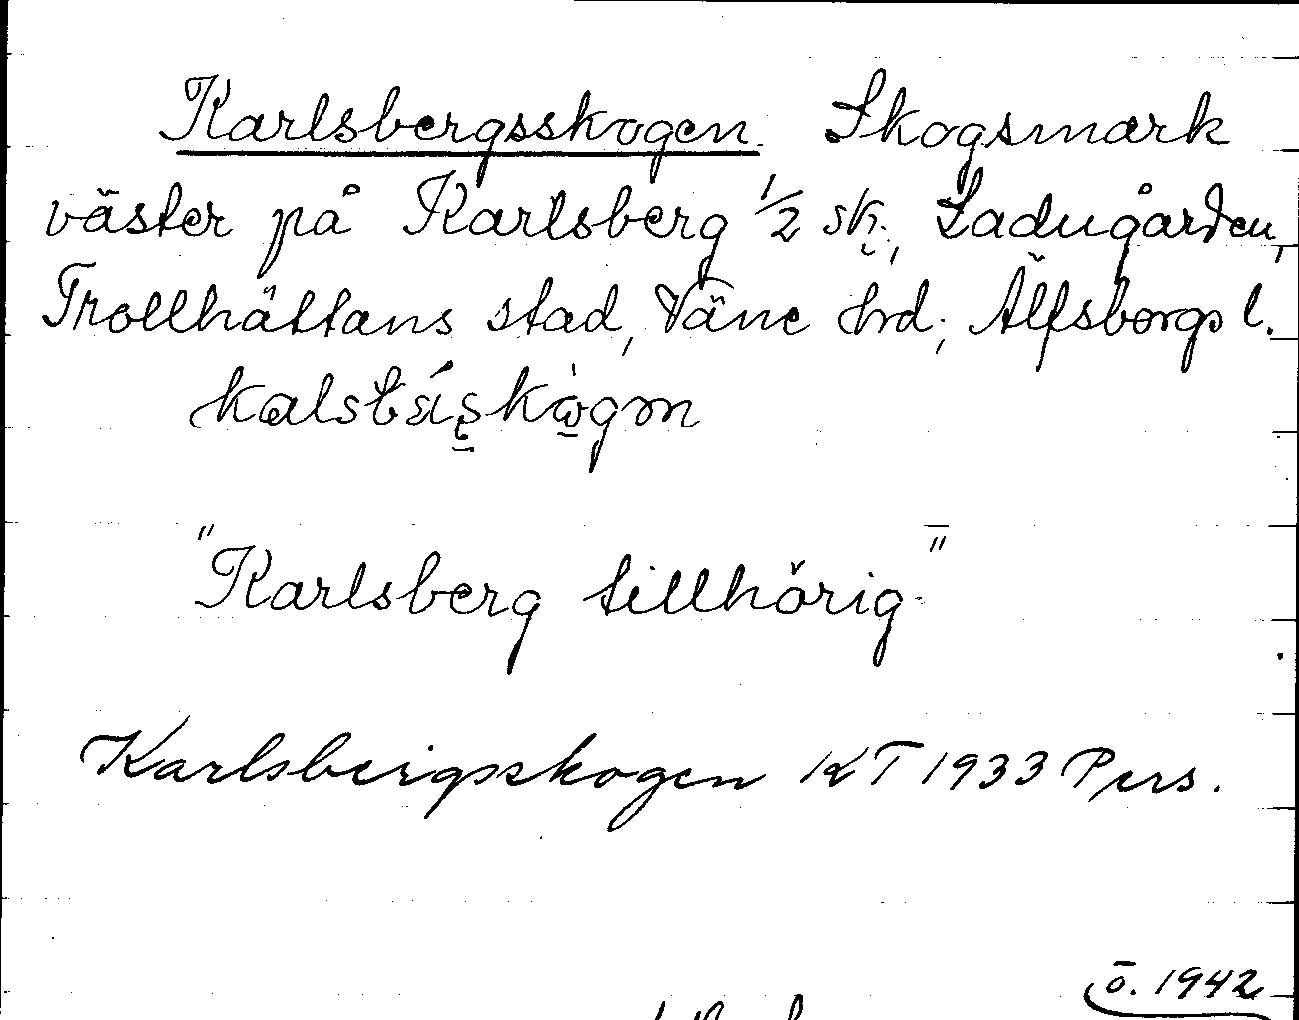 Karlsbergsskogen. Skogsmark
väster på Karlsberg 1/2 sk., Ladugården,
Trollhättans stad, Väne hd., Älfsborgs l.
"Karlsberg tillhörig."
Karlsbergsskogen KT 1933 Pers.
ö. 1942